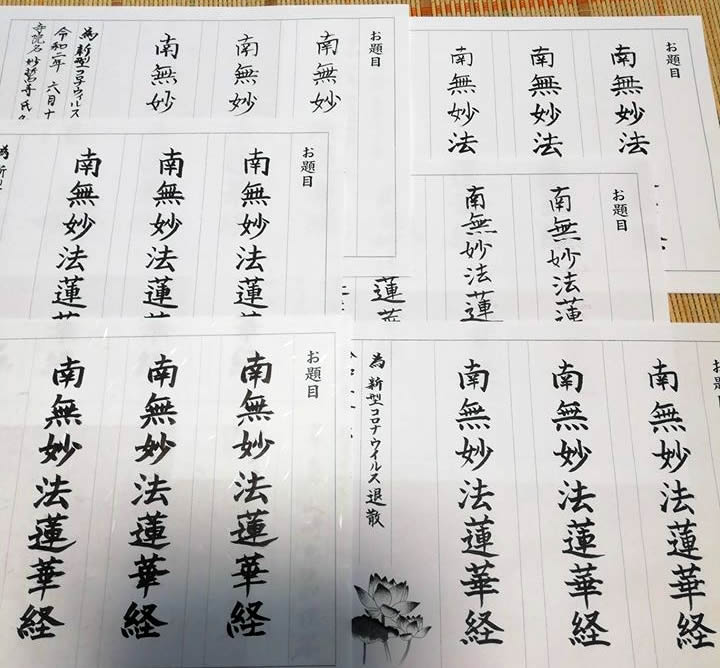 お題目
南無妙法
南無妙法
南無妙法
お題目
南無妙
南無妙
南無妙
為 新型コロナウィルス
令和二年 六月十
お題目
南無妙法蓮
南無妙法蓮
蓮
お題目
南無妙法蓮
南無妙法蓮
南無妙法蓮
為
お題目
南無妙法蓮華経
南無妙法蓮華経
南無妙法蓮華経
為 新型コロナウイルス退散
お題目
南無妙法蓮華経
南無妙法蓮華経
南無妙法蓮華経